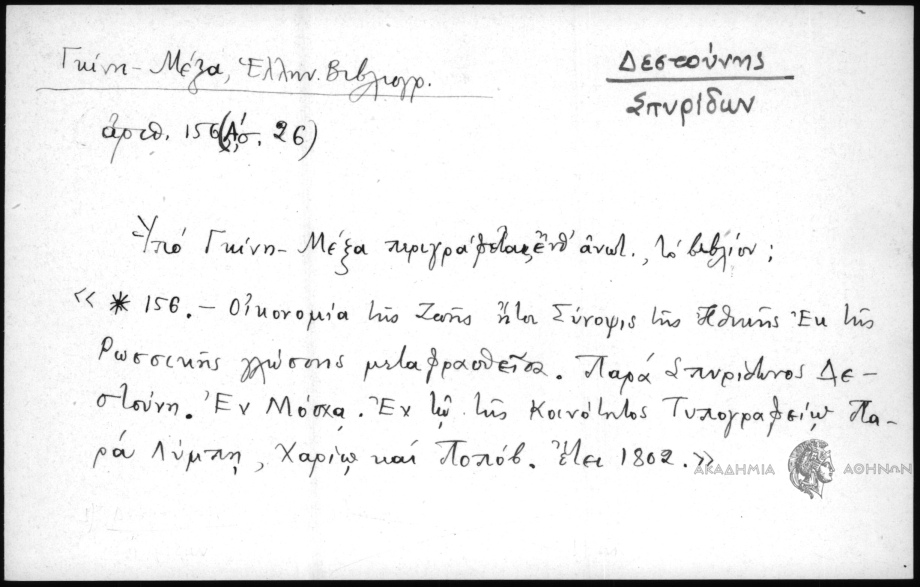 Γκίνη - Μέξα, Ἑλλην. Βιβλιογρ.
Δεστούνης
Σπυρίδων
ἀριθ. 156 (Α', σ. 26)
Ὑπό Γκίνη - Μέξα περιγράφεται, ἔνθ' ἀνωτ., τό βιβλίον:
« * 156. – Οἰκονομία τῆς Ζωῆς ἤτοι Σύνοψις τῆς Ἠθικῆς Ἐκ τῆς
Ρωσσικῆς γλώσσης μεταφρασθεῖσα. Παρά Σπυρίδωνος Δε-
στούνη. Ἐν Μόσχᾳ. Ἐν τῷ τῆς Κοινότητος Τυπογραφείῳ Πα-
ρά Λύμπῃ, Χαρίῳ καί Ποπόβ. Ἔτει 1802. »
ΑΚΑΔΗΜΙΑ ΑΘΗΝΩΝ